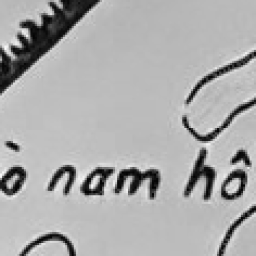 ò nam hô